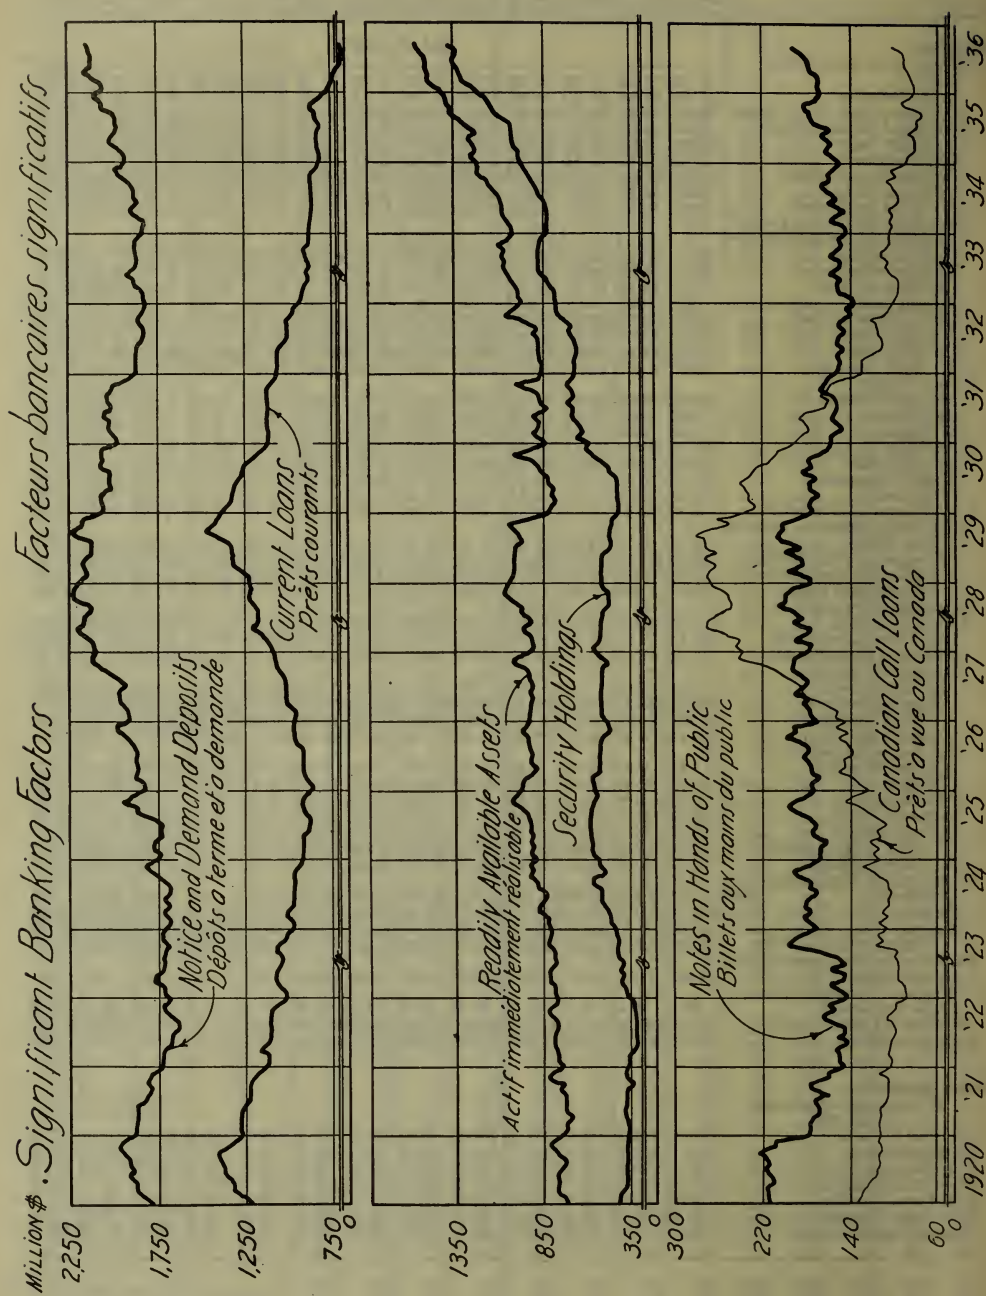 MILLION $. Significant Banking Factors Facteurs bancaires significatifs
2,250
1,750
1,250
750
0
Notice and Demand Deposits
Dépôts à terme et à demande
Current Loans
Prêts courants
1350
850
350
0
Readily Available Assets
Actif immédiatement réalisable
Security Holdings
300
220
140
60
0
Notes in Hands of Public
Billets aux mains du public
Canadian Call Loans
Prêts à vue au Canada
1920 '21 '22 '23 '24 '25 '26 '27 '28 '29 '30 '31 '32 '33 '34 '35 '36